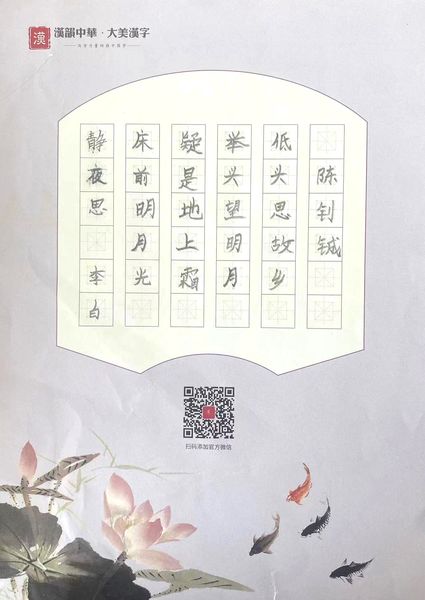 漢
漢韻中華·大美漢字
静夜思 李白
床前明月光
疑是地上霜
举头望明月
低头思故乡
陈钊铖
扫码添加官方微信